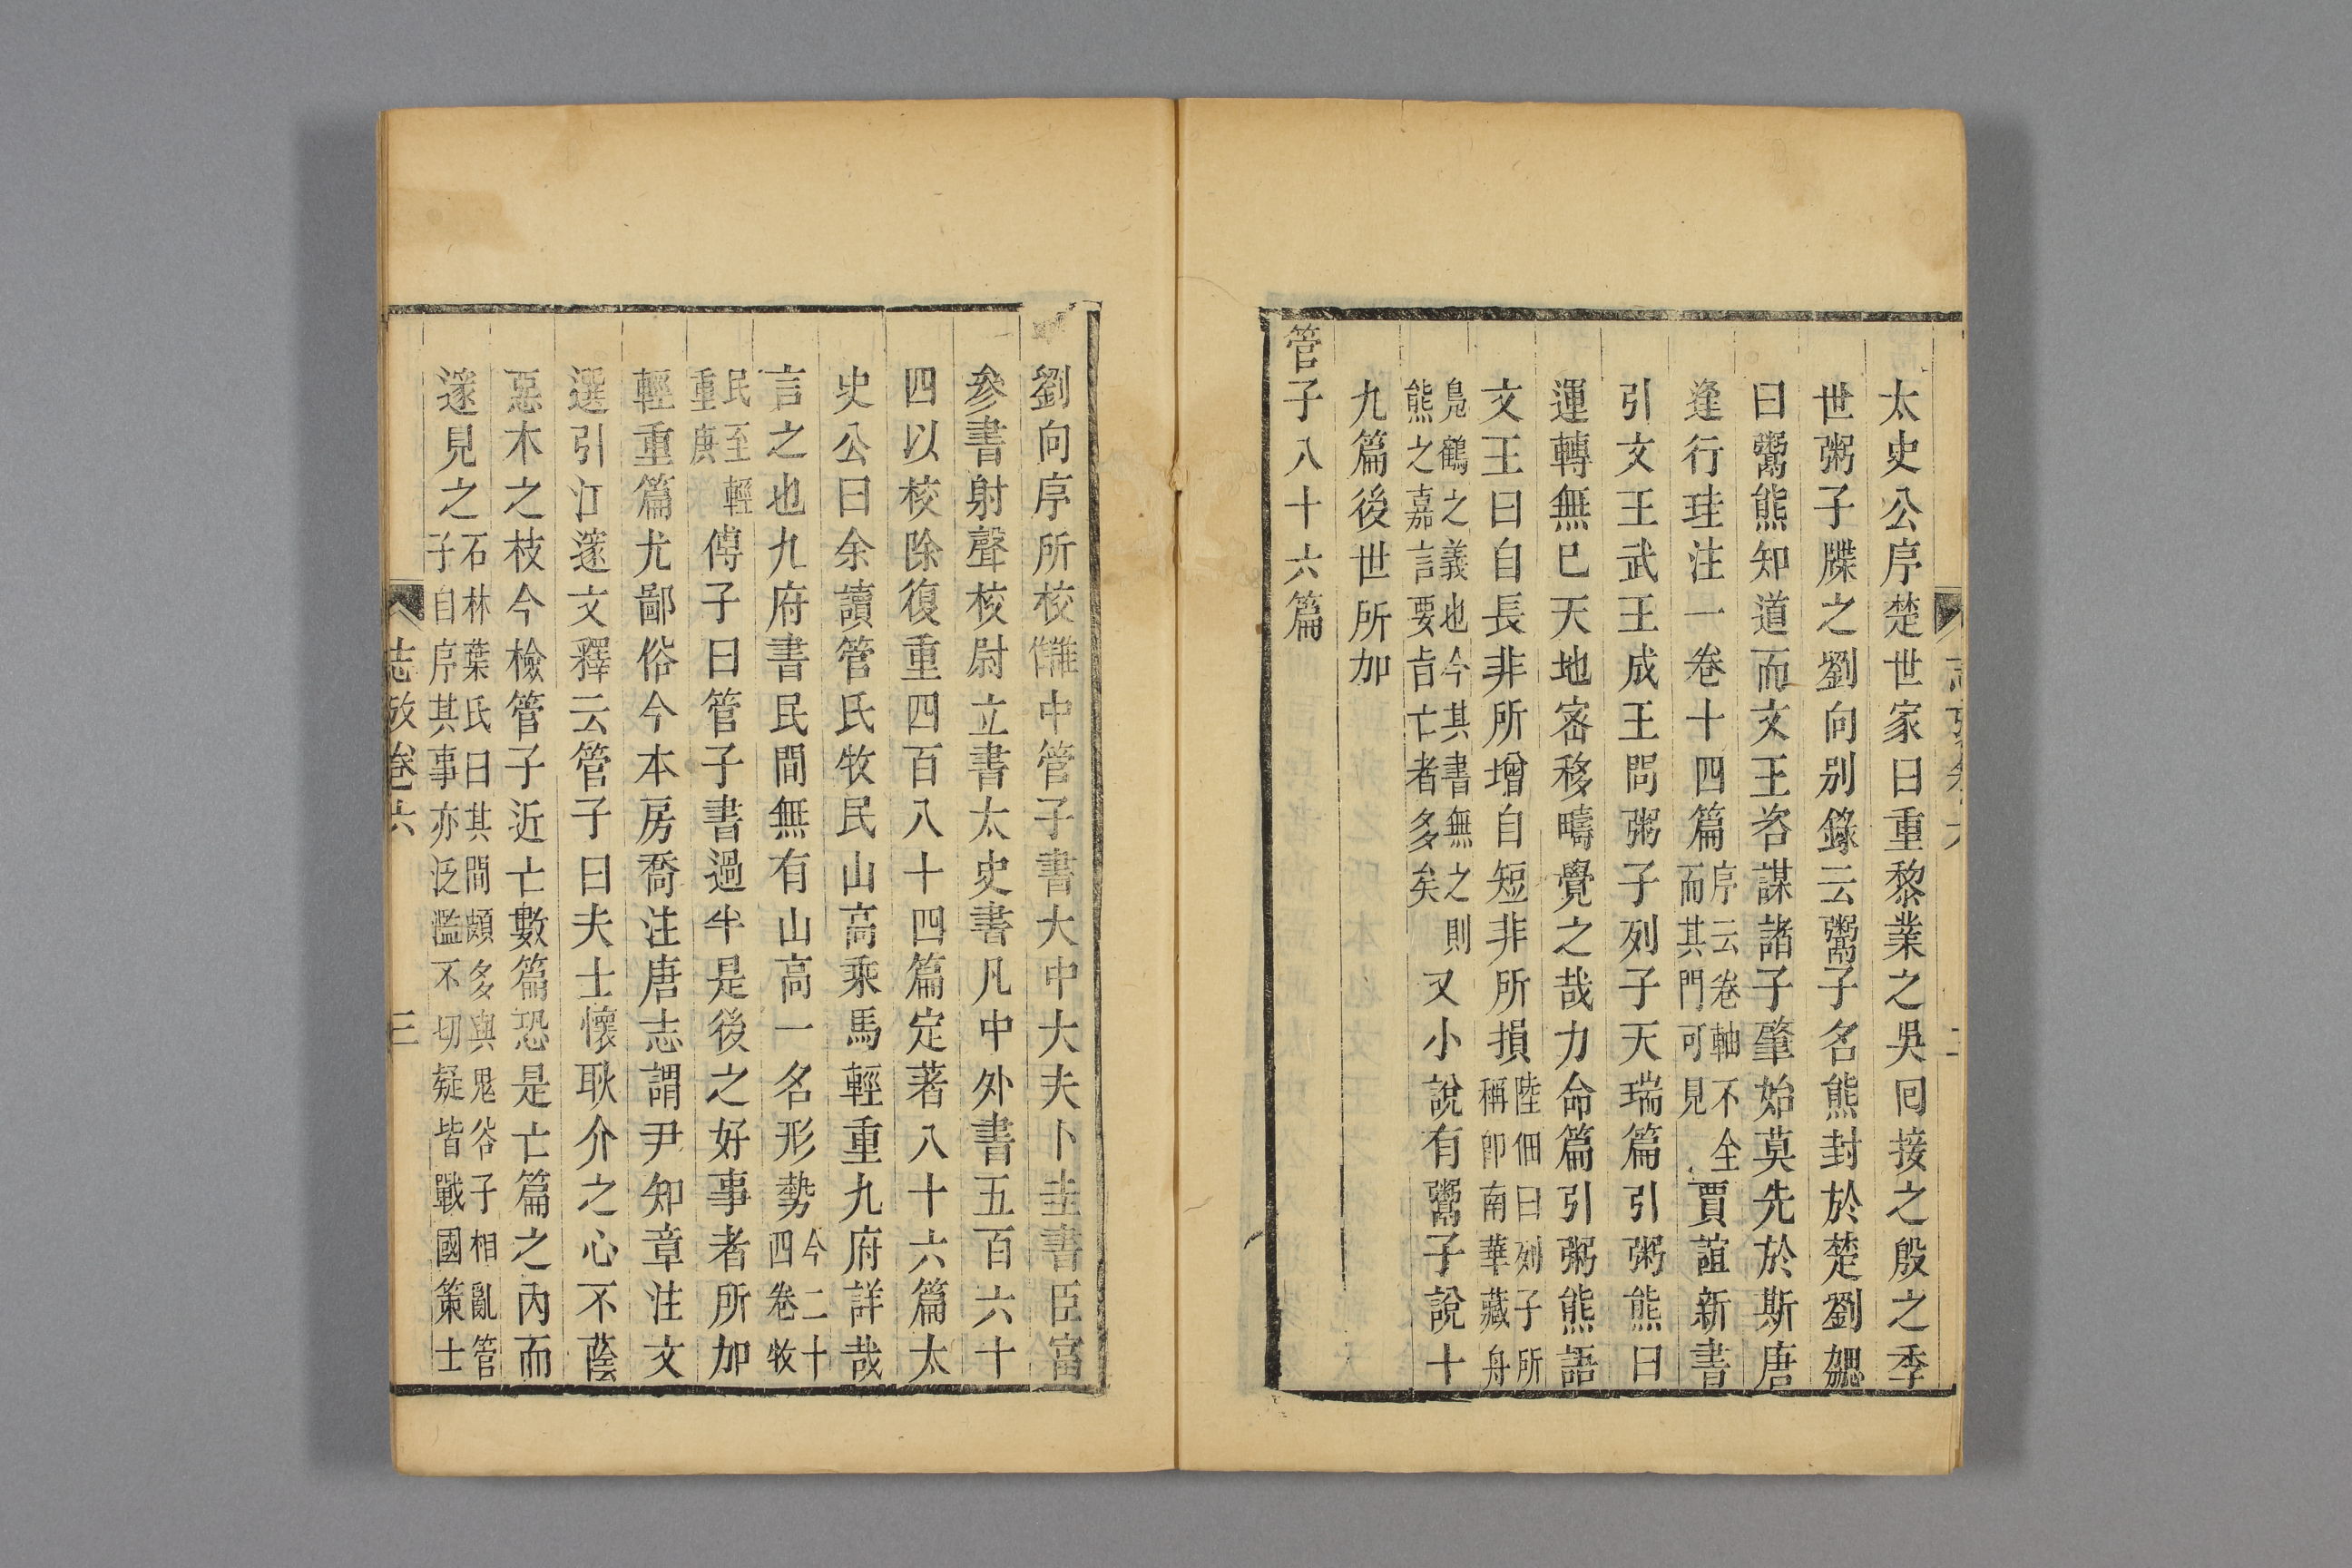 太史公序楚世家曰重黎業之吳回接之殷之季
世粥子牒之劉向别錄云鬻子名熊封於楚劉勰
曰鬻熊知道而文王咨謀諸子肇始莫先於斯唐
逢行珪注一卷十四篇序云卷軸不全而其門可見賈誼新書
引文王武王成王問粥子列子天瑞篇引粥熊曰
運轉無巳天地宻移疇覺之哉力命篇引粥熊語
文王曰自長非所增自短非所損陸佃曰列子所稱卽南華藏舟
鳬鶴之義也今其書無之則熊之嘉言要㫖亡者多矣又小說有鬻子說十
九篇後世所加
管子八十六篇
劉向序所校讎中管子書大中大夫卜圭書臣富
參書射聲校尉立書太史書凡中外書五百六十
四以校除復重四百八十四篇定著八十六篇太
史公曰余讀管氏牧民山高乘馬輕重九府詳哉
言之也九府書民間無有山高一名形勢今二十四卷牧
民至輕重庚傅子曰管子書過半是後之好事者所加
輕重篇尤鄙俗今本房喬注唐志謂尹知章注文
選引江邃文釋云管子曰夫士懷耿介之心不蔭
惡木之枝今檢管子近亡數篇恐是亡篇之內而
邃見之石林葉氏曰其間頗多與鬼谷子相亂管子自序其事亦泛濫不切疑皆戰國策士
志攷卷六
三